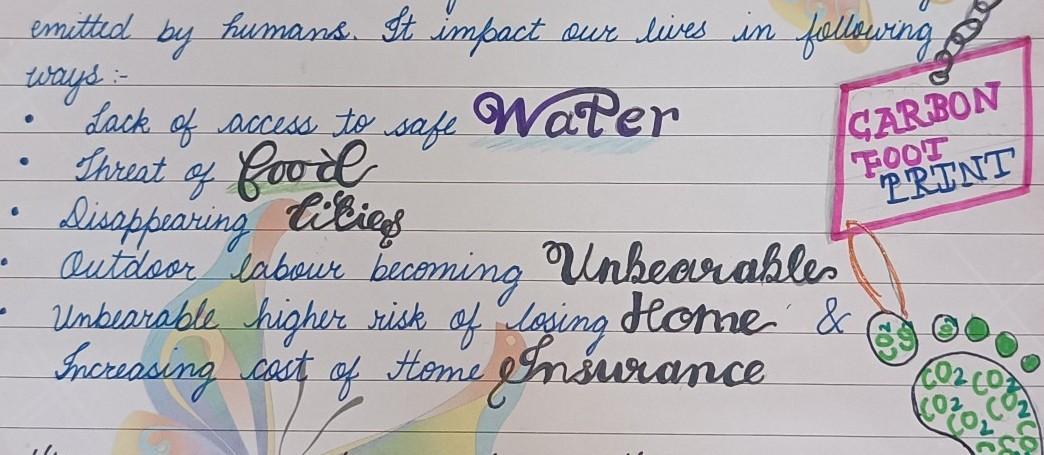 emitted by humans. It impact our lives in following
ways :-
• Lack of access to safe Water
• Threat of food
• Disappearing Cities
• Outdoor labour becoming Unbearable.
• Unbearable higher risk of losing Home &
Increasing cost of Home Insurance
CARBON
FOOT
PRINT
CO2
CO2 CO2
CO2 CO2
CO2